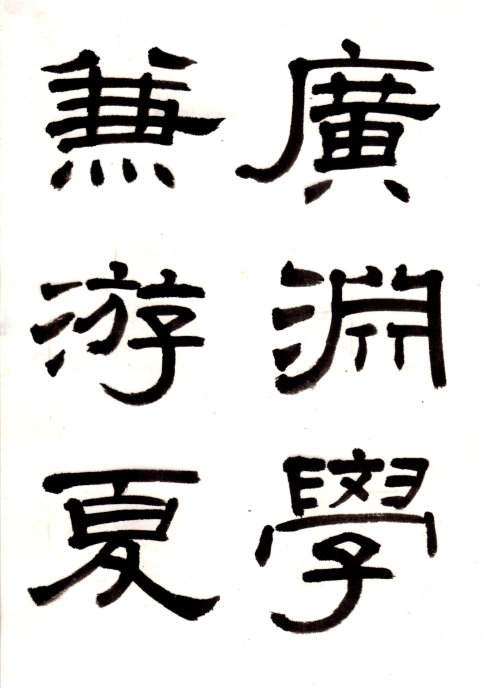 廣淵學
兼游夏